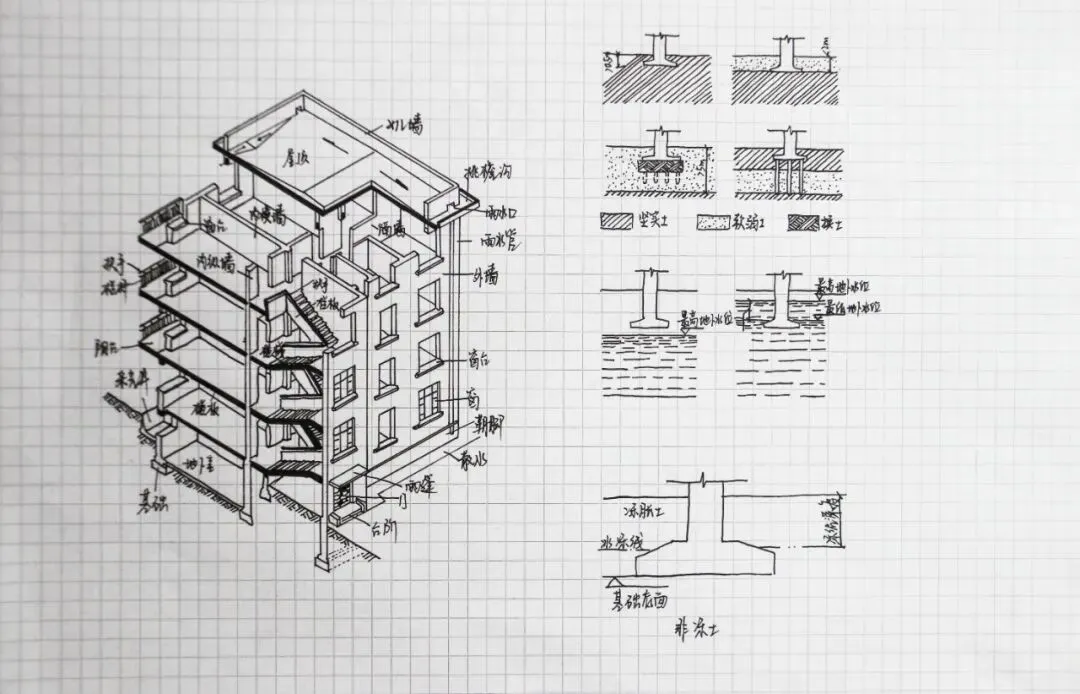 女儿墙
屋顶
挑檐沟
雨水口
雨水管
外墙
内横墙
隔墙
阳台
内纵墙
扶手
栏杆
扶手
楼板
阳台
窗台
窗
采光井
楼板
勒脚
散水
地下室
基础
雨篷
门
台阶
坚实土
软弱土
换土
最高地下水位
最高地下水位
最低地下水位
冻胀土
冰冻线
冻结深度
基础底面
非冻土